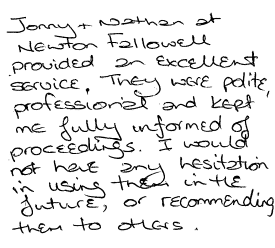 Jonny + Nathan at
Newton Fallowell
provided an excellent
service. They were polite,
professional and kept
me fully informed of
proceedings. I would
not have any hesitation
in using them in the
future, or recommending
them to others.